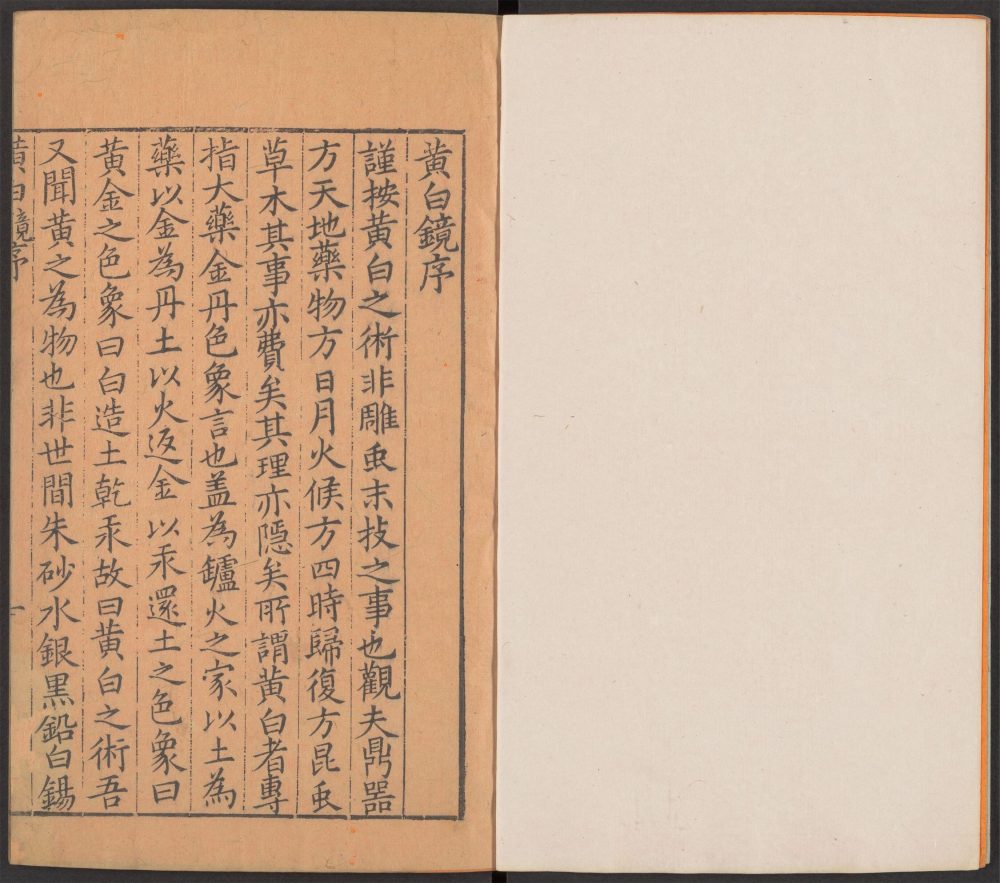 黄白鏡序
謹按黄白之術非雕䖝末技之事也觀夫鼎器
方天地藥物方日月火候方四時歸復方昆䖝
草木其事亦費矣其理亦隱矣所謂黄白者專
指大藥金丹色象言也盖為鑪火之家以土為
藥以金為丹土以火返金以汞還土之色象曰
黄金之色象曰白造土乾汞故曰黄白之術吾
又聞黄之為物也非世間朱砂水銀黑鉛白錫
黄白鏡序
一